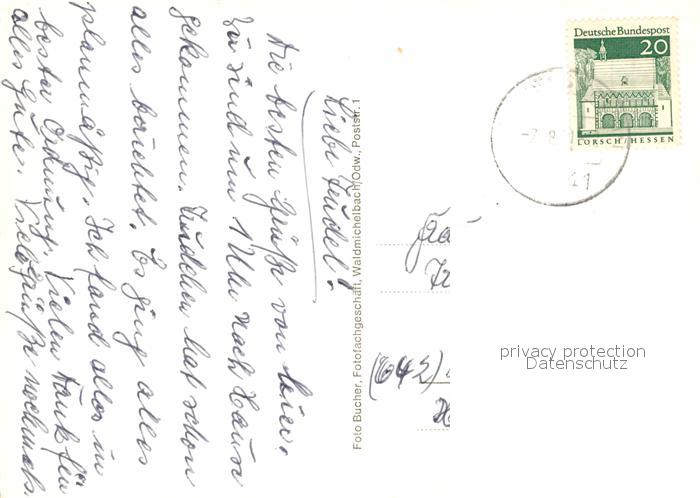 Liebe Trudel!
Die besten Grüße von hier.
Wir sind um 1 Uhr nach Hause
gekommen. Trudchen hat schon
alles berichtet. Es ging alles
planmäßig. Ich fand alles in
bester Ordnung. Vielen Dank für
alles Gute. Viele Grüße nochmals.
Foto Bucher, Fotofachgeschäft, Waldmichelbach/Odw., Poststr. 1
Deutsche Bundespost
20
LORSCH/HESSEN
41
Frau
(642)
privacy protection
Datenschutz